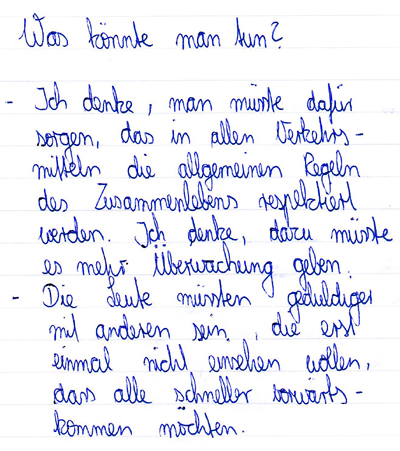 Was könnte man tun?
- Ich denke, man müsste dafür
sorgen, das in allen Verkehrs-
mitteln die allgemeinen Regeln
des Zusammenlebens respektiert
werden. Ich denke, dazu müsste
es mehr Überwachung geben.
- Die Leute müssten geduldiger
mit anderen sein, die erst
einmal nicht einsehen wollen,
dass alle schneller vorwärts-
kommen möchten.